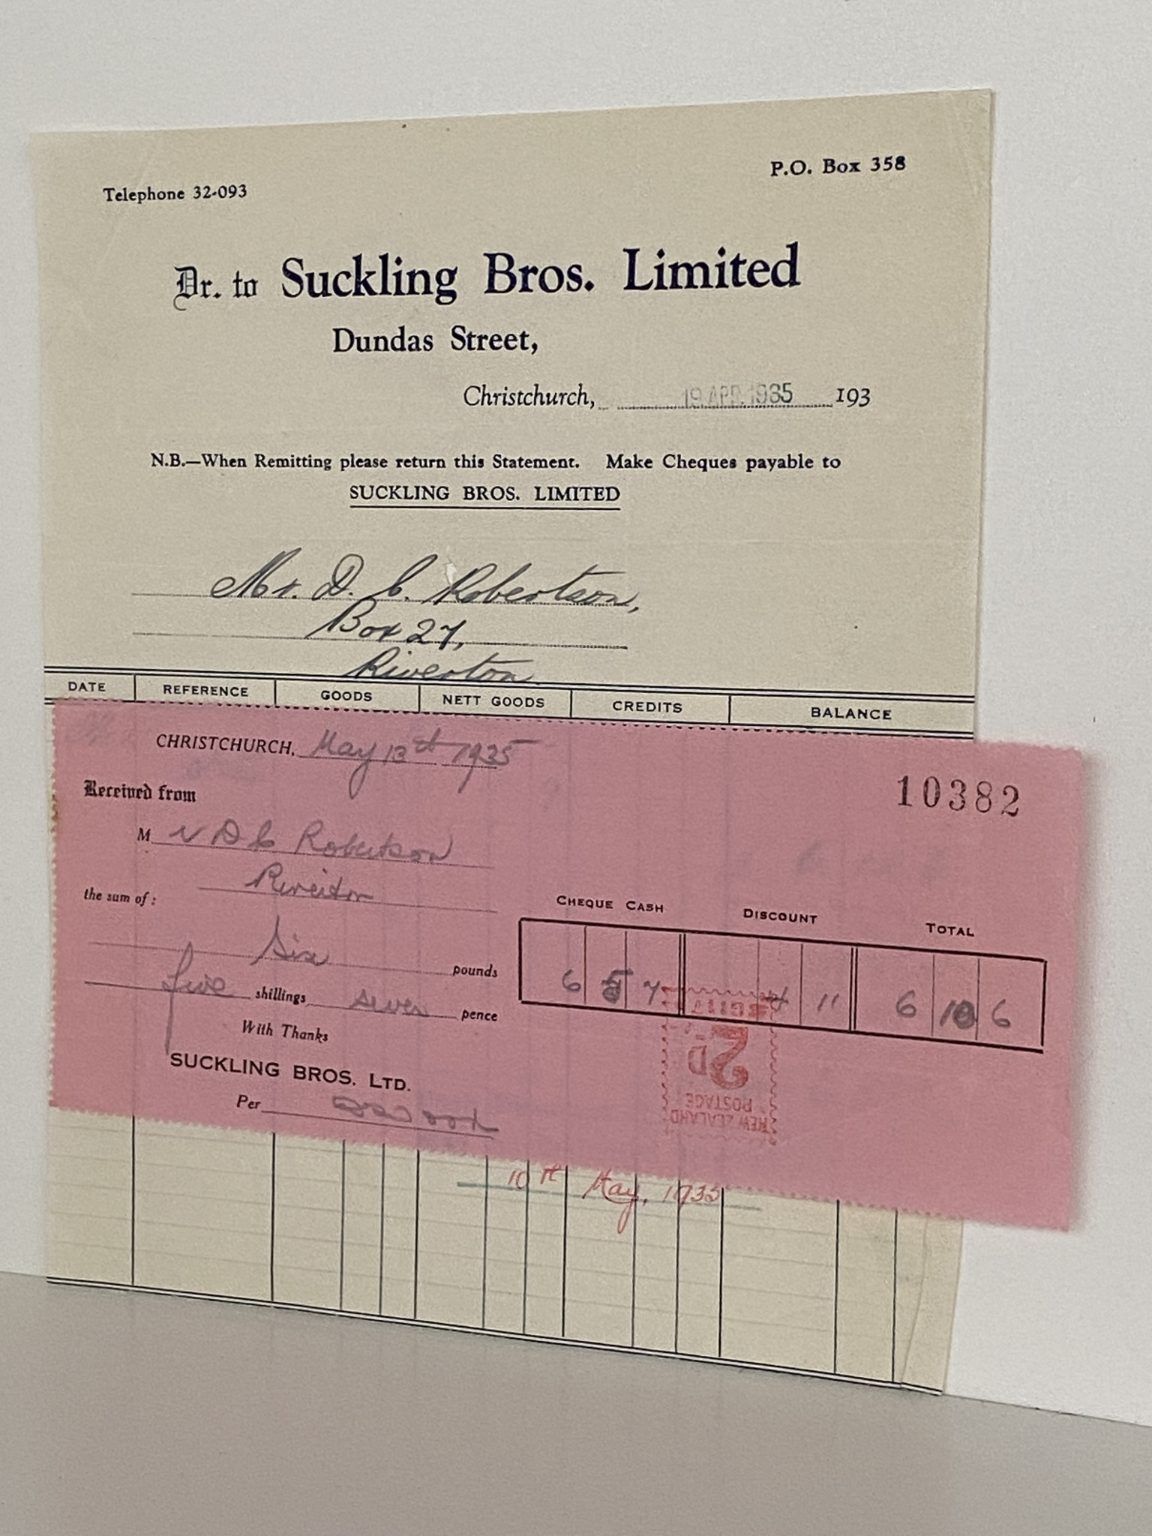 Telephone 32-093
P.O. Box 358
Dr. to Suckling Bros. Limited
Dundas Street,
Christchurch, 19 APR 1935 193
N.B.—When Remitting please return this Statement. Make Cheques payable to
SUCKLING BROS. LIMITED
Mr. D. C. Robertson,
Box 27,
Riverton
DATE REFERENCE GOODS NETT GOODS CREDITS BALANCE
CHRISTCHURCH, May 13th 1935
10382
Received from
Mr D C Robertson
Riverton
the sum of:
Six pounds
five shillings seven pence
With Thanks
SUCKLING BROS. LTD.
Per
CHEQUE CASH DISCOUNT TOTAL
6 5 7 4 11 6 10 6
2D
POSTAGE
NEW ZEALAND
10th May, 1935